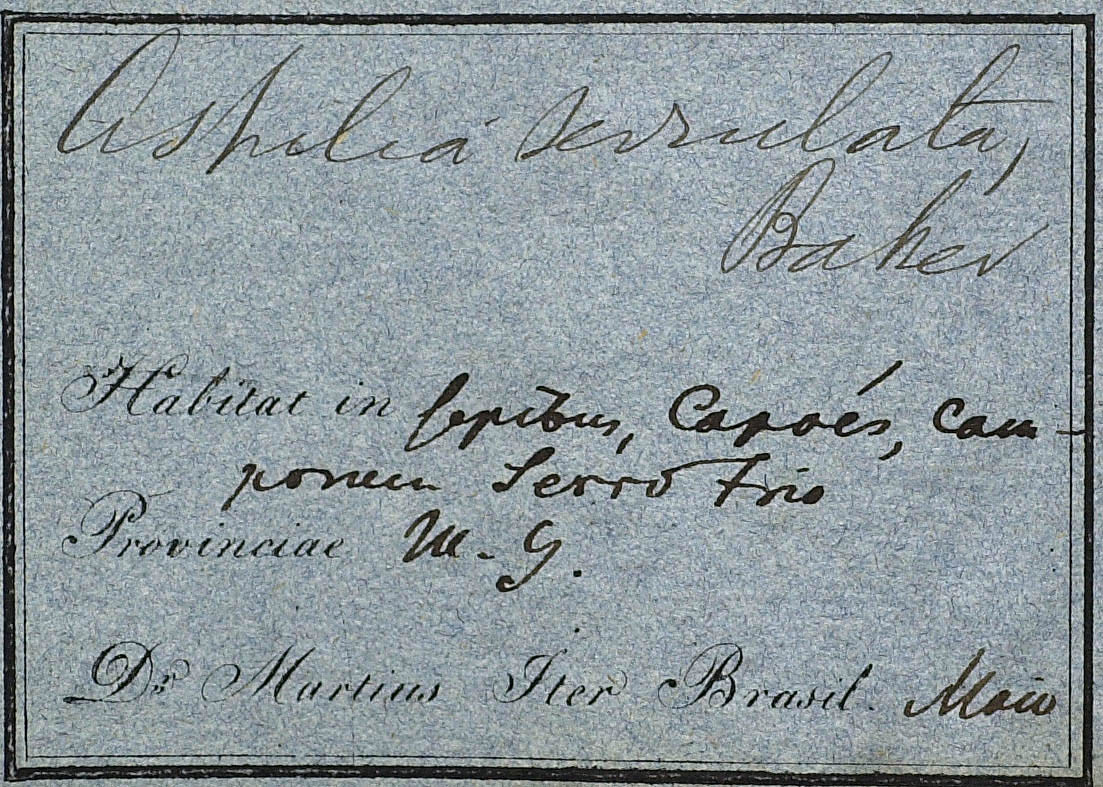 Aspilia serrulata,
Baker
Habitat in sepibus, Capoés, Cam-
ponem Serro Frio
Provinciae M. G.
Dr Martius Iter Brasil. Maio